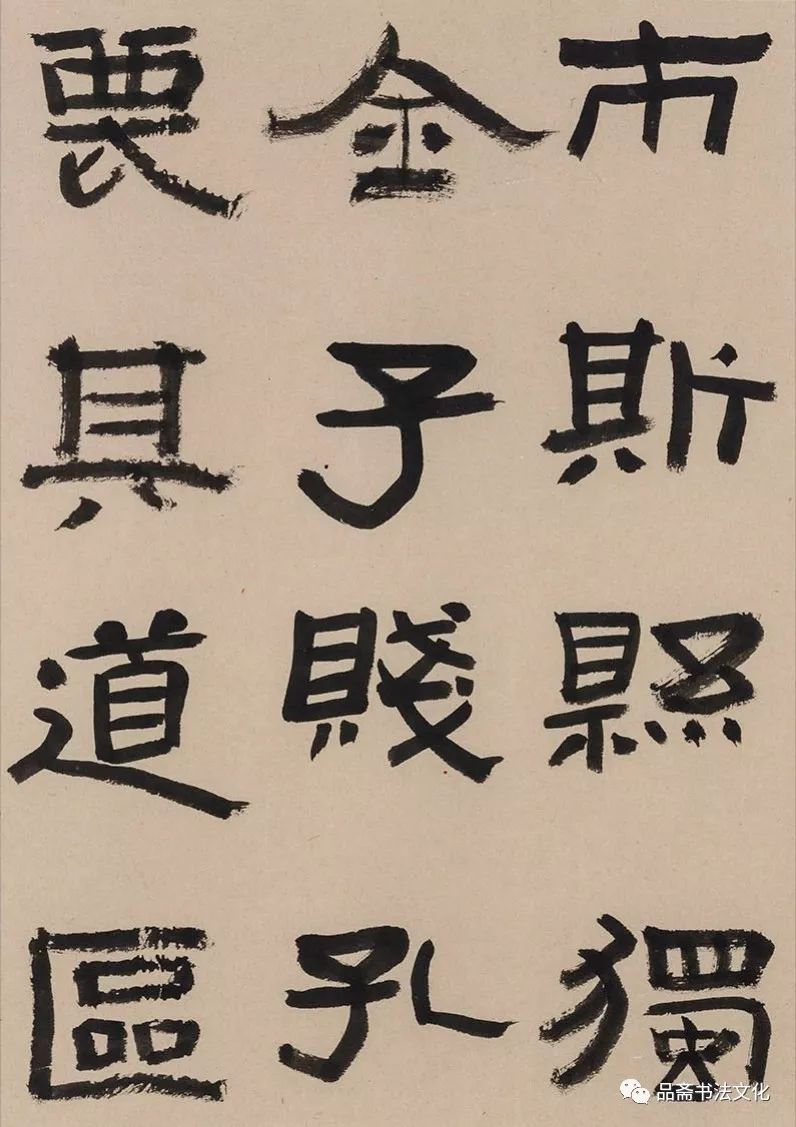 市斯縣獨
金子賤孔
具道區
品斋书法文化